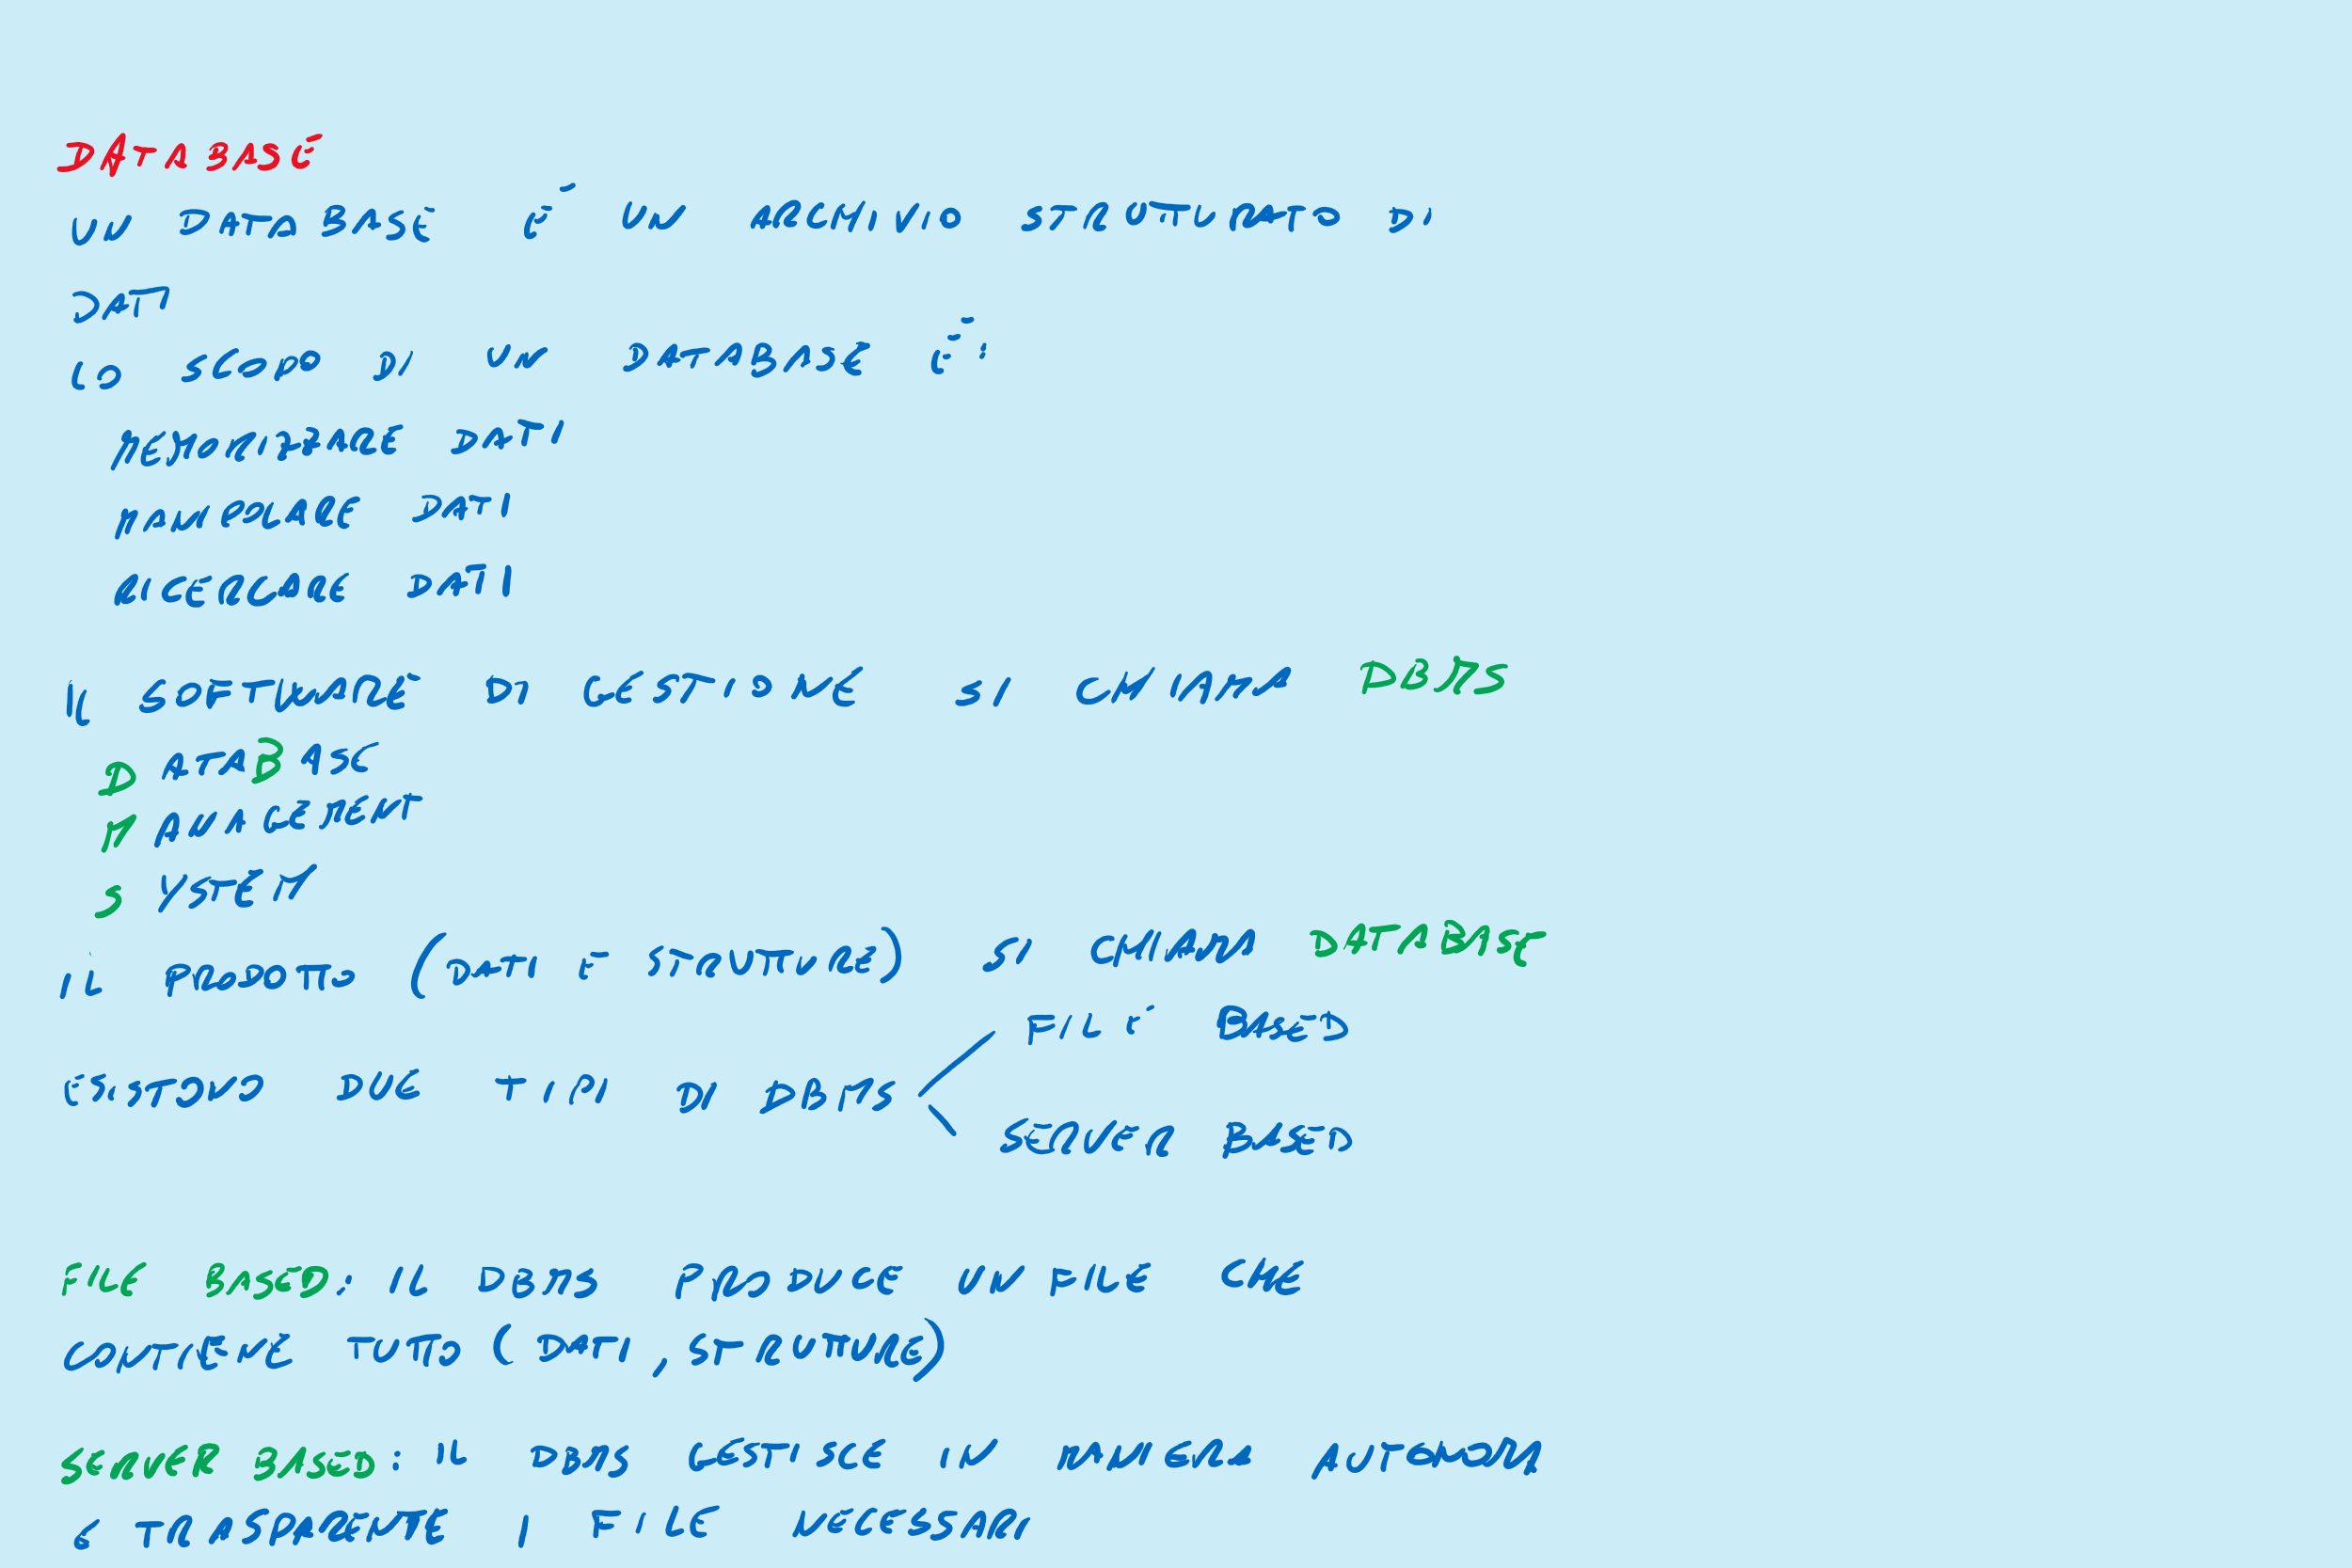 DATABASE
UN DATABASE È UN ARCHIVIO STRUTTURATO DI
DATI
LO SCOPO DI UN DATABASE È:
MEMORIZZARE DATI
MANIPOLARE DATI
RICERCARE DATI
IL SOFTWARE DI GESTIONE SI CHIAMA DBMS
DATABASE
MANAGEMENT
SYSTEM
IL PRODOTTO (DATI E STRUTTURE) SI CHIAMA DATABASE
FILE BASED
ESISTONO DUE TIPI DI DBMS
SERVER BASED
FILE BASED: IL DBMS PRODUCE UN FILE CHE
CONTIENE TUTTO (DATI, STRUTTURE)
SERVER BASED: IL DBMS GESTISCE IN MANIERA AUTONOMA
E TRASPARENTE I FILE NECESSARI